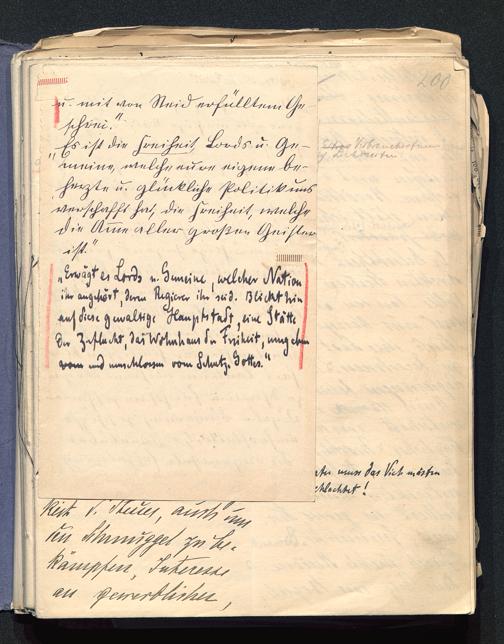 200
u. mit von Neid erfülltem Ge-
schrei."
"Es ist die Freiheit, Lords u. Ge-
meine, welche eure eigene be-
herzte u. glückliche Politik uns
verschafft hat, die Freiheit, welche
die Amme aller großen Geister
ist."
"Erwägt es Lords u. Gemeine, welcher Nation
ihr angehört, deren Regierer ihr seid. Blickt hin
auf diese gewaltige Hauptstadt, eine Stätte
der Zuflucht, das Wohnhaus der Freiheit, umgeben
und umschlossen vom Schutz Gottes."
muss das Vieh mästen
schlachtet!
d. Steuer, auch um
den Schmuggel zu be-
kämpfen, Interesse
an gewerblichen,